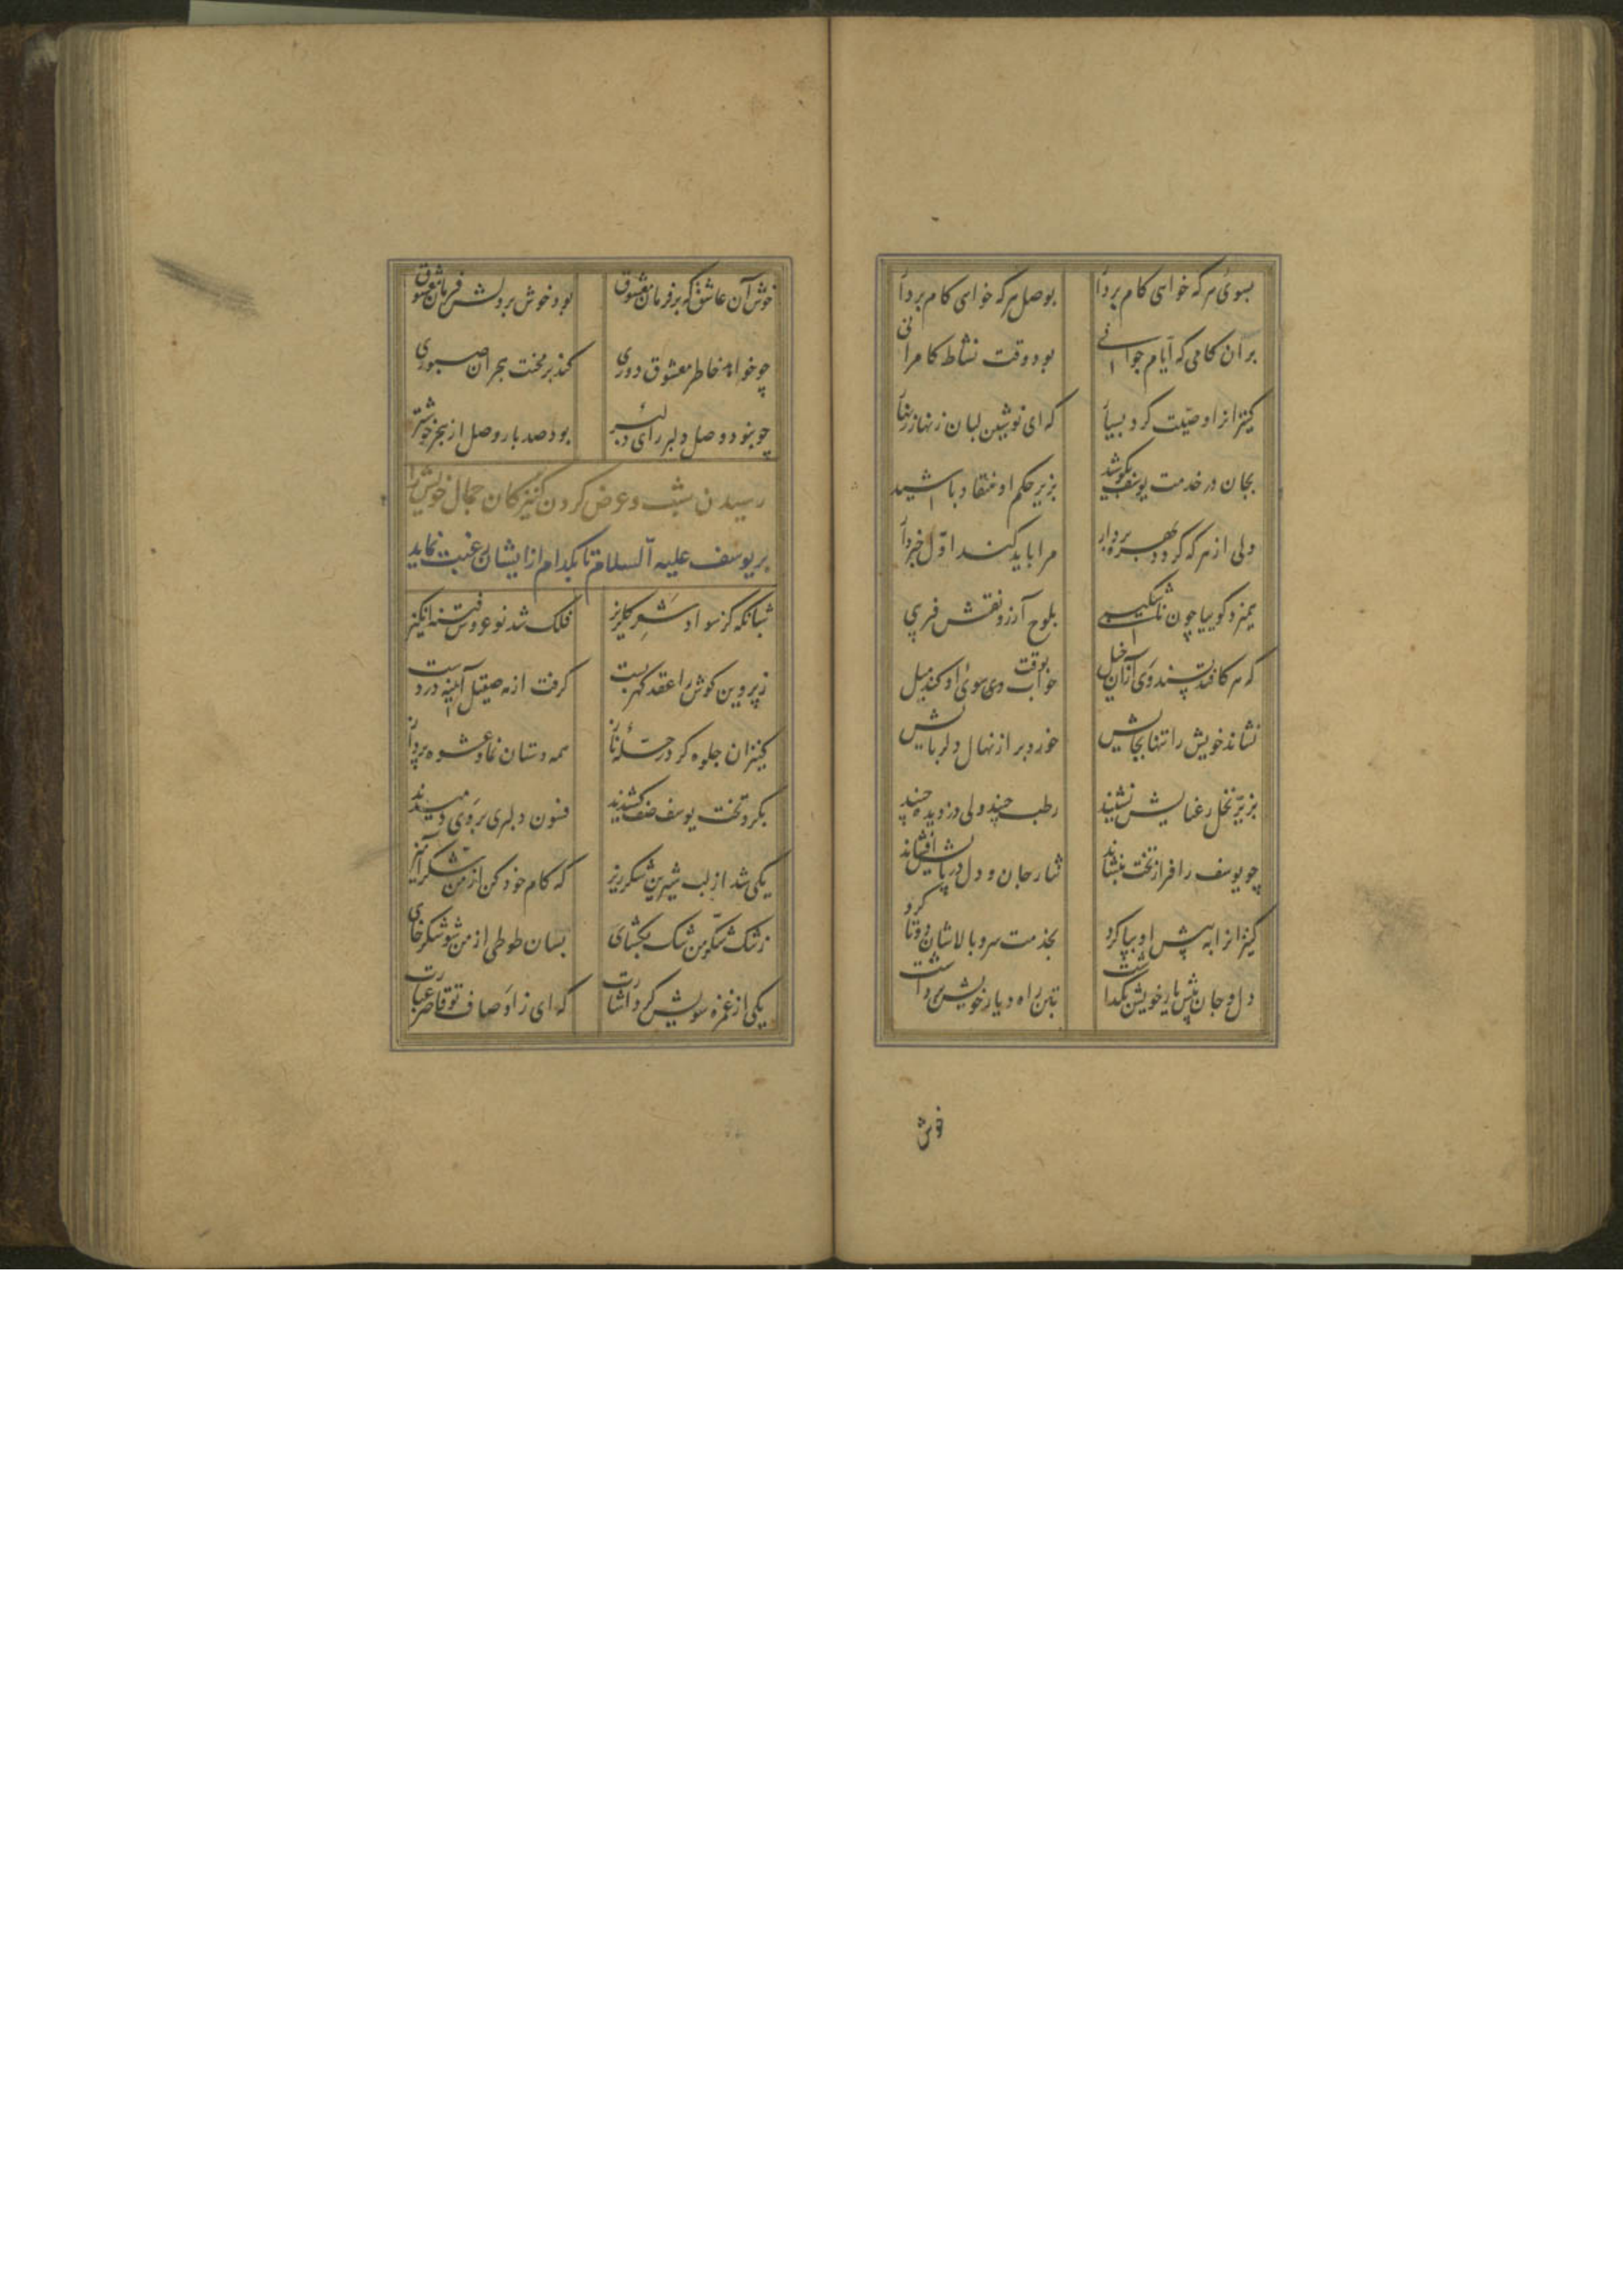 بسوی هر که خواهی کام بردار بوصل هر که خواهی کام بردار
بران کامی که ایام جوانی بود وقت نشاط کامرانی
کنیزانرا وصیّت کرد بسیار که ای نوشین لبان زنهار زنهار
بجان در خدمت یوسف بکوشید بزیر حکم او منقاد باشید
ولی از هر که گردد بهره بردار مرا باید کند اوّل خبردار
همیزد گوییا چون ناشکیبی بلوح آرزو نقش فریبی
که هر کافتد پسند وی ازان خیل بوقت خواب وی سوی او کند میل
نشاند خویش را تنها بجایش خورد بر از نهال دلربایش
بزیر نخل رعنایش نشیند رطب چیند ولی دزدیده چیند
چو یوسف را فراز تخت بنشاند نثار جان و دل در پایش افشاند
کنیزانرا به پیش او بپا کرد بخدمت سرو بالاشان دوتا کرد
دل و جان پیش یار خویش بگذاشت بتن راه دیار خویش برداشت
خوش
خوش آن عاشق که بر فرمان معشوق بود خوش بر دلش فرمان معشوق
چو خواهد خاطر معشوق دوری کند بر محنت هجران صبوری
چو بنود وصل دلبر رای دلبر بود صد بار وصل از هجر خوشتر
رسیدن شب و عرض کردن کنیزکان جمال خویش را
بر یوسف علیه السلام تا بکدام از ایشان رغبت نماید
شبانگه کز سواد شعر گلریز فلک شد نو عروس فتنه انگیز
ز پروین گوش را عقد گهر بست گرفت از مه صیقل آینه در دست
کنیزان جلوه گر در حلّهٔ ناز همه دستان نما و عشوه پرداز
بگرد تخت یوسف صف کشیدند فسون دلبری بر وی دمیدند
یکی شد از لب شیرین شکرریز که کام خود کن از من شکر آمیز
ز تنگ شکّر من تنگ بگشای بسان طوطی از من شو شکر خای
یکی از غمزه سویش کرد اشارت که ای ز اوصاف تو قاصر عبارت